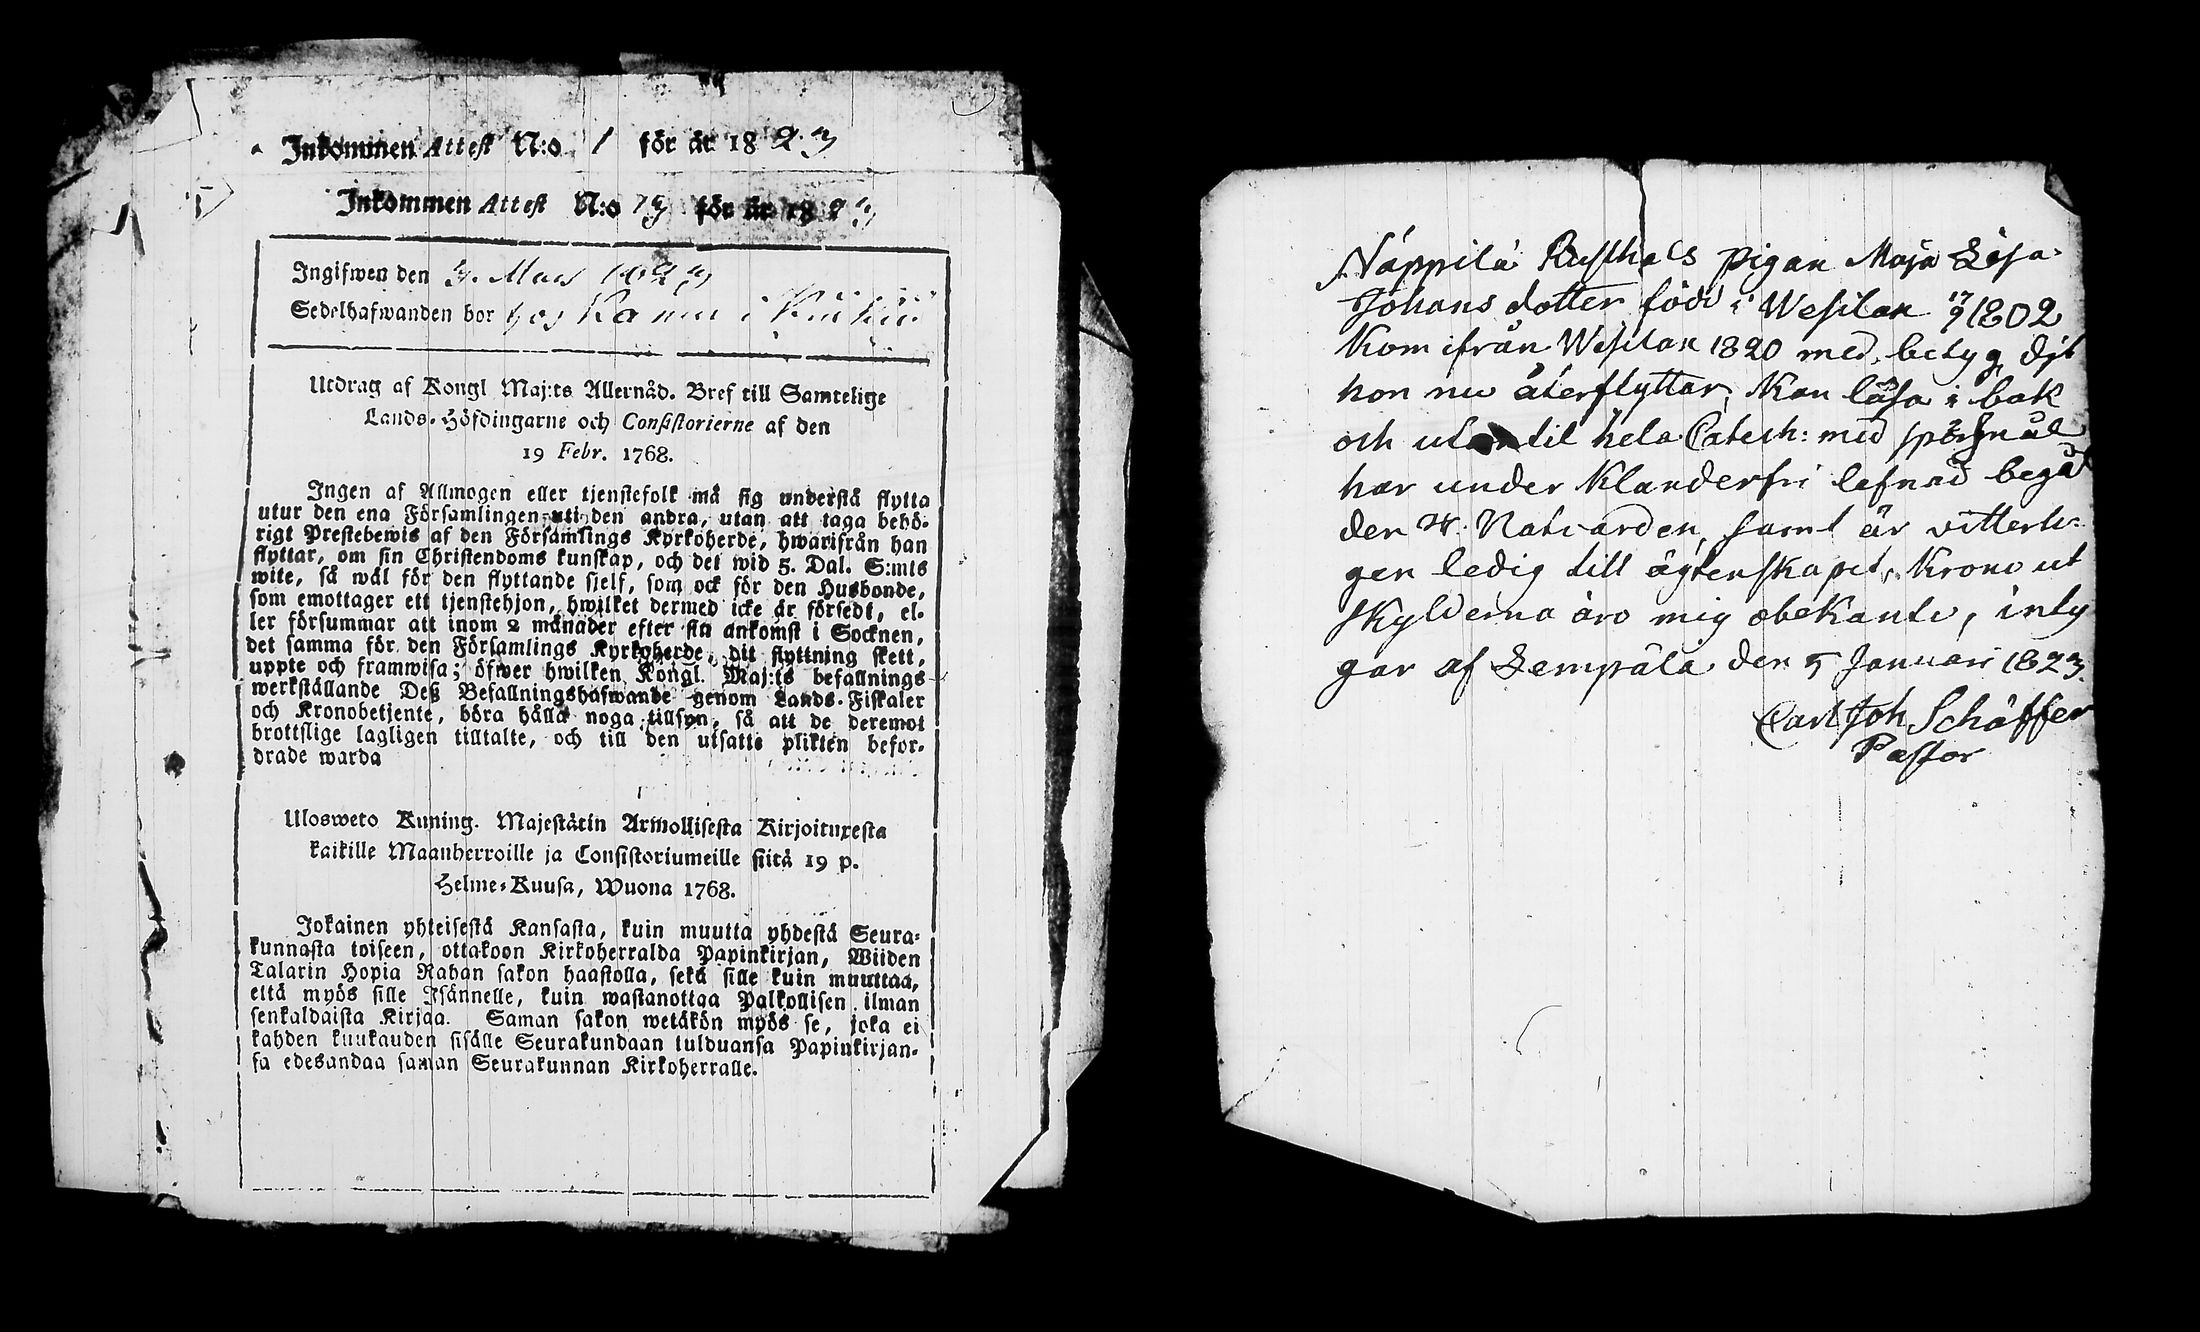 Inkommen Attest N:o 1 för år 1823
Inkommen Attest N:o 73 för år 1823
Ingifwen den 3. Mars 1823
Sedelhafwanden bor hos i
Utdrag af Kongl Maj:ts Allernåd. Bref till Samtelige
Lands-Höfdingarne och Consistorierne af den
19 Febr. 1768.
Ingen af Allmogen eller tjenstefolk må sig understå flytta
utur den ena Församlingen uti den andra, utan att taga behö-
rigt Prestebewis af den Församlings Kyrkoherde, hwarifrån han
flyttar, om sin Christendoms kunskap, och det wid 5. Dal. S:mts
wite, så wäl för den flyttande sjelf, som ock för den Husbonde,
som emottager ett tjenstehjon, hwilket dermed icke är försedt, el-
ler försummar att inom 2 månader efter sin ankomst i Socknen,
det samma för den Församlings Kyrkoherde, dit flyttning skett,
uppte och framwisa; öfwer hwilken Kongl. Maj:ts befallnings
werkställande Deß Befallningshafwande genom Lands-Fiskaler
och Kronobetjente, böra hålla noga tillsyn, så att de deremot
brottslige lagligen tilltalte, och till den utsatte plikten befor-
drade warda
Ulosweto Kuning. Majestätin Armollisesta Kirjoituxesta
kaikille Maanherroille ja Consistoriumeille siitä 19 p.
Helme-Kuusa, Wuona 1768.
Jokainen yhteisestä Kansasta, kuin muutta yhdestä Seura-
kunnasta toiseen, ottakoon Kirkoherralda Papinkirjan, Wiiden
Talarin Hopia Rahan sakon haastolla, sekä sille kuin muuttaa,
että myös sille Isännelle, kuin wastanottaa Palkollisen ilman
senkaldaista Kirjaa. Saman sakon wetäkön myös se, joka ei
kahden kuukauden sisälle Seurakundaan tulduansa Papinkirjan-
sa edesandaa saman Seurakunnan Kirkoherralle.
Näppilä Rusthåls pigan Maja Lisa
Johans dotter född i Wesilax 17/9 1802
kom ifrån Wesilax 1820 med betyg, dit
hon nu återflyttar, kan läsa i bok
och utantil hela Catech: med spörsmål
har under klanderfri lefnad begåt
den H. Natvarden, samt är vitterli-
gen ledig till ägtenskapet, Krono ut
skylderna äro mig obekante, inty
gar af Lempäla den 5 Januari 1823.
Carl Joh Schäffer
Pastor